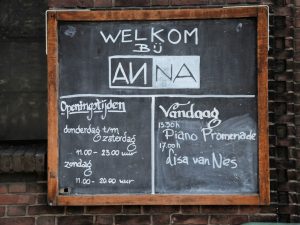 WELKOM
BIJ
ANNA
Openingstijden
donderdag t/m
zaterdag
11.00 - 23.00 uur
zondag
11.00 - 20.00 uur
Vandaag
15.30h
Piano Promenade
17.00h
Lisa van Nes